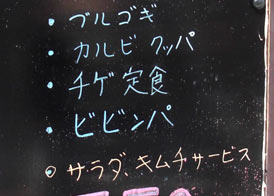 ・ブルゴギ
・カルビ クッパ
・チゲ定食
・ビビンパ
◎サラダ、キムチサービス